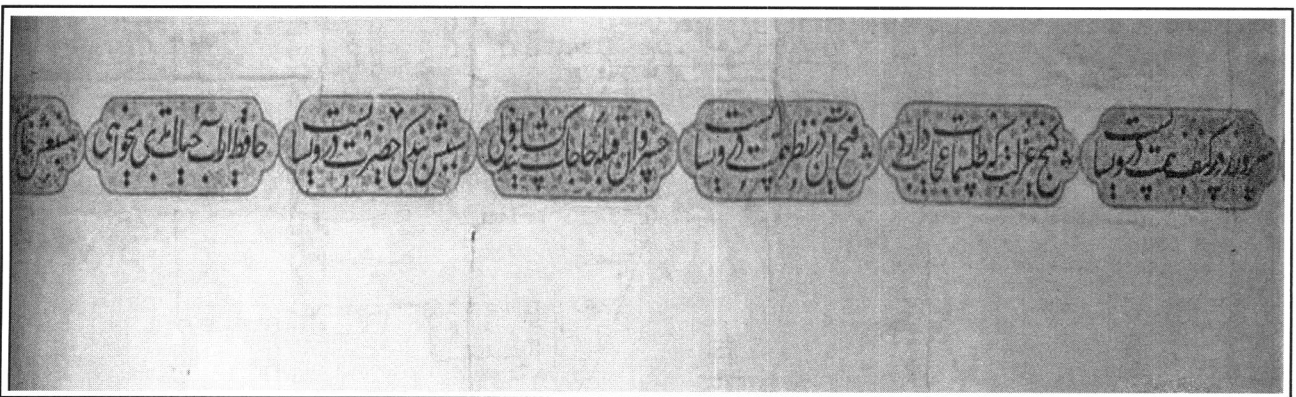 سر و زر در کنف همت درویشانست
گنج عزلت که طلسمات عجایب دارد
فتح آن در نظر همت درویشانست
خسروان قبله حاجات ولی
سببش بندگی حضرت درویشانست
حافظ ار آب حیات ابدی میخواهی
منبعش خاک